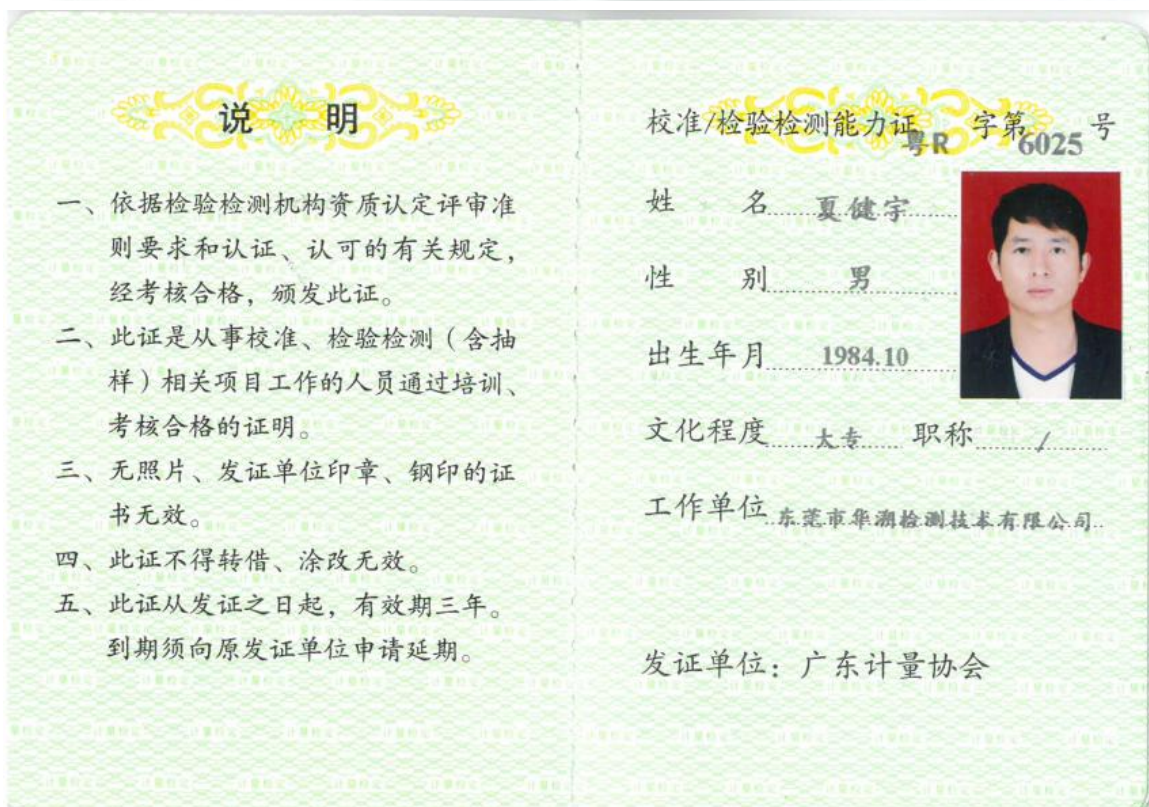 说 明
一、依据检验检测机构资质认定评审准
则要求和认证、认可的有关规定，
经考核合格，颁发此证。
二、此证是从事校准、检验检测（含抽
样）相关项目工作的人员通过培训、
考核合格的证明。
三、无照片、发证单位印章、钢印的证
书无效。
四、此证不得转借、涂改无效。
五、此证从发证之日起，有效期三年。
到期须向原发证单位申请延期。
校准/检验检测能力证 粤R 字第6025号
姓 名 夏健宇
性 别 男
出生年月 1984.10
文化程度 大专 职称 /
工作单位 东莞市华溯检测技术有限公司
发证单位：广东计量协会